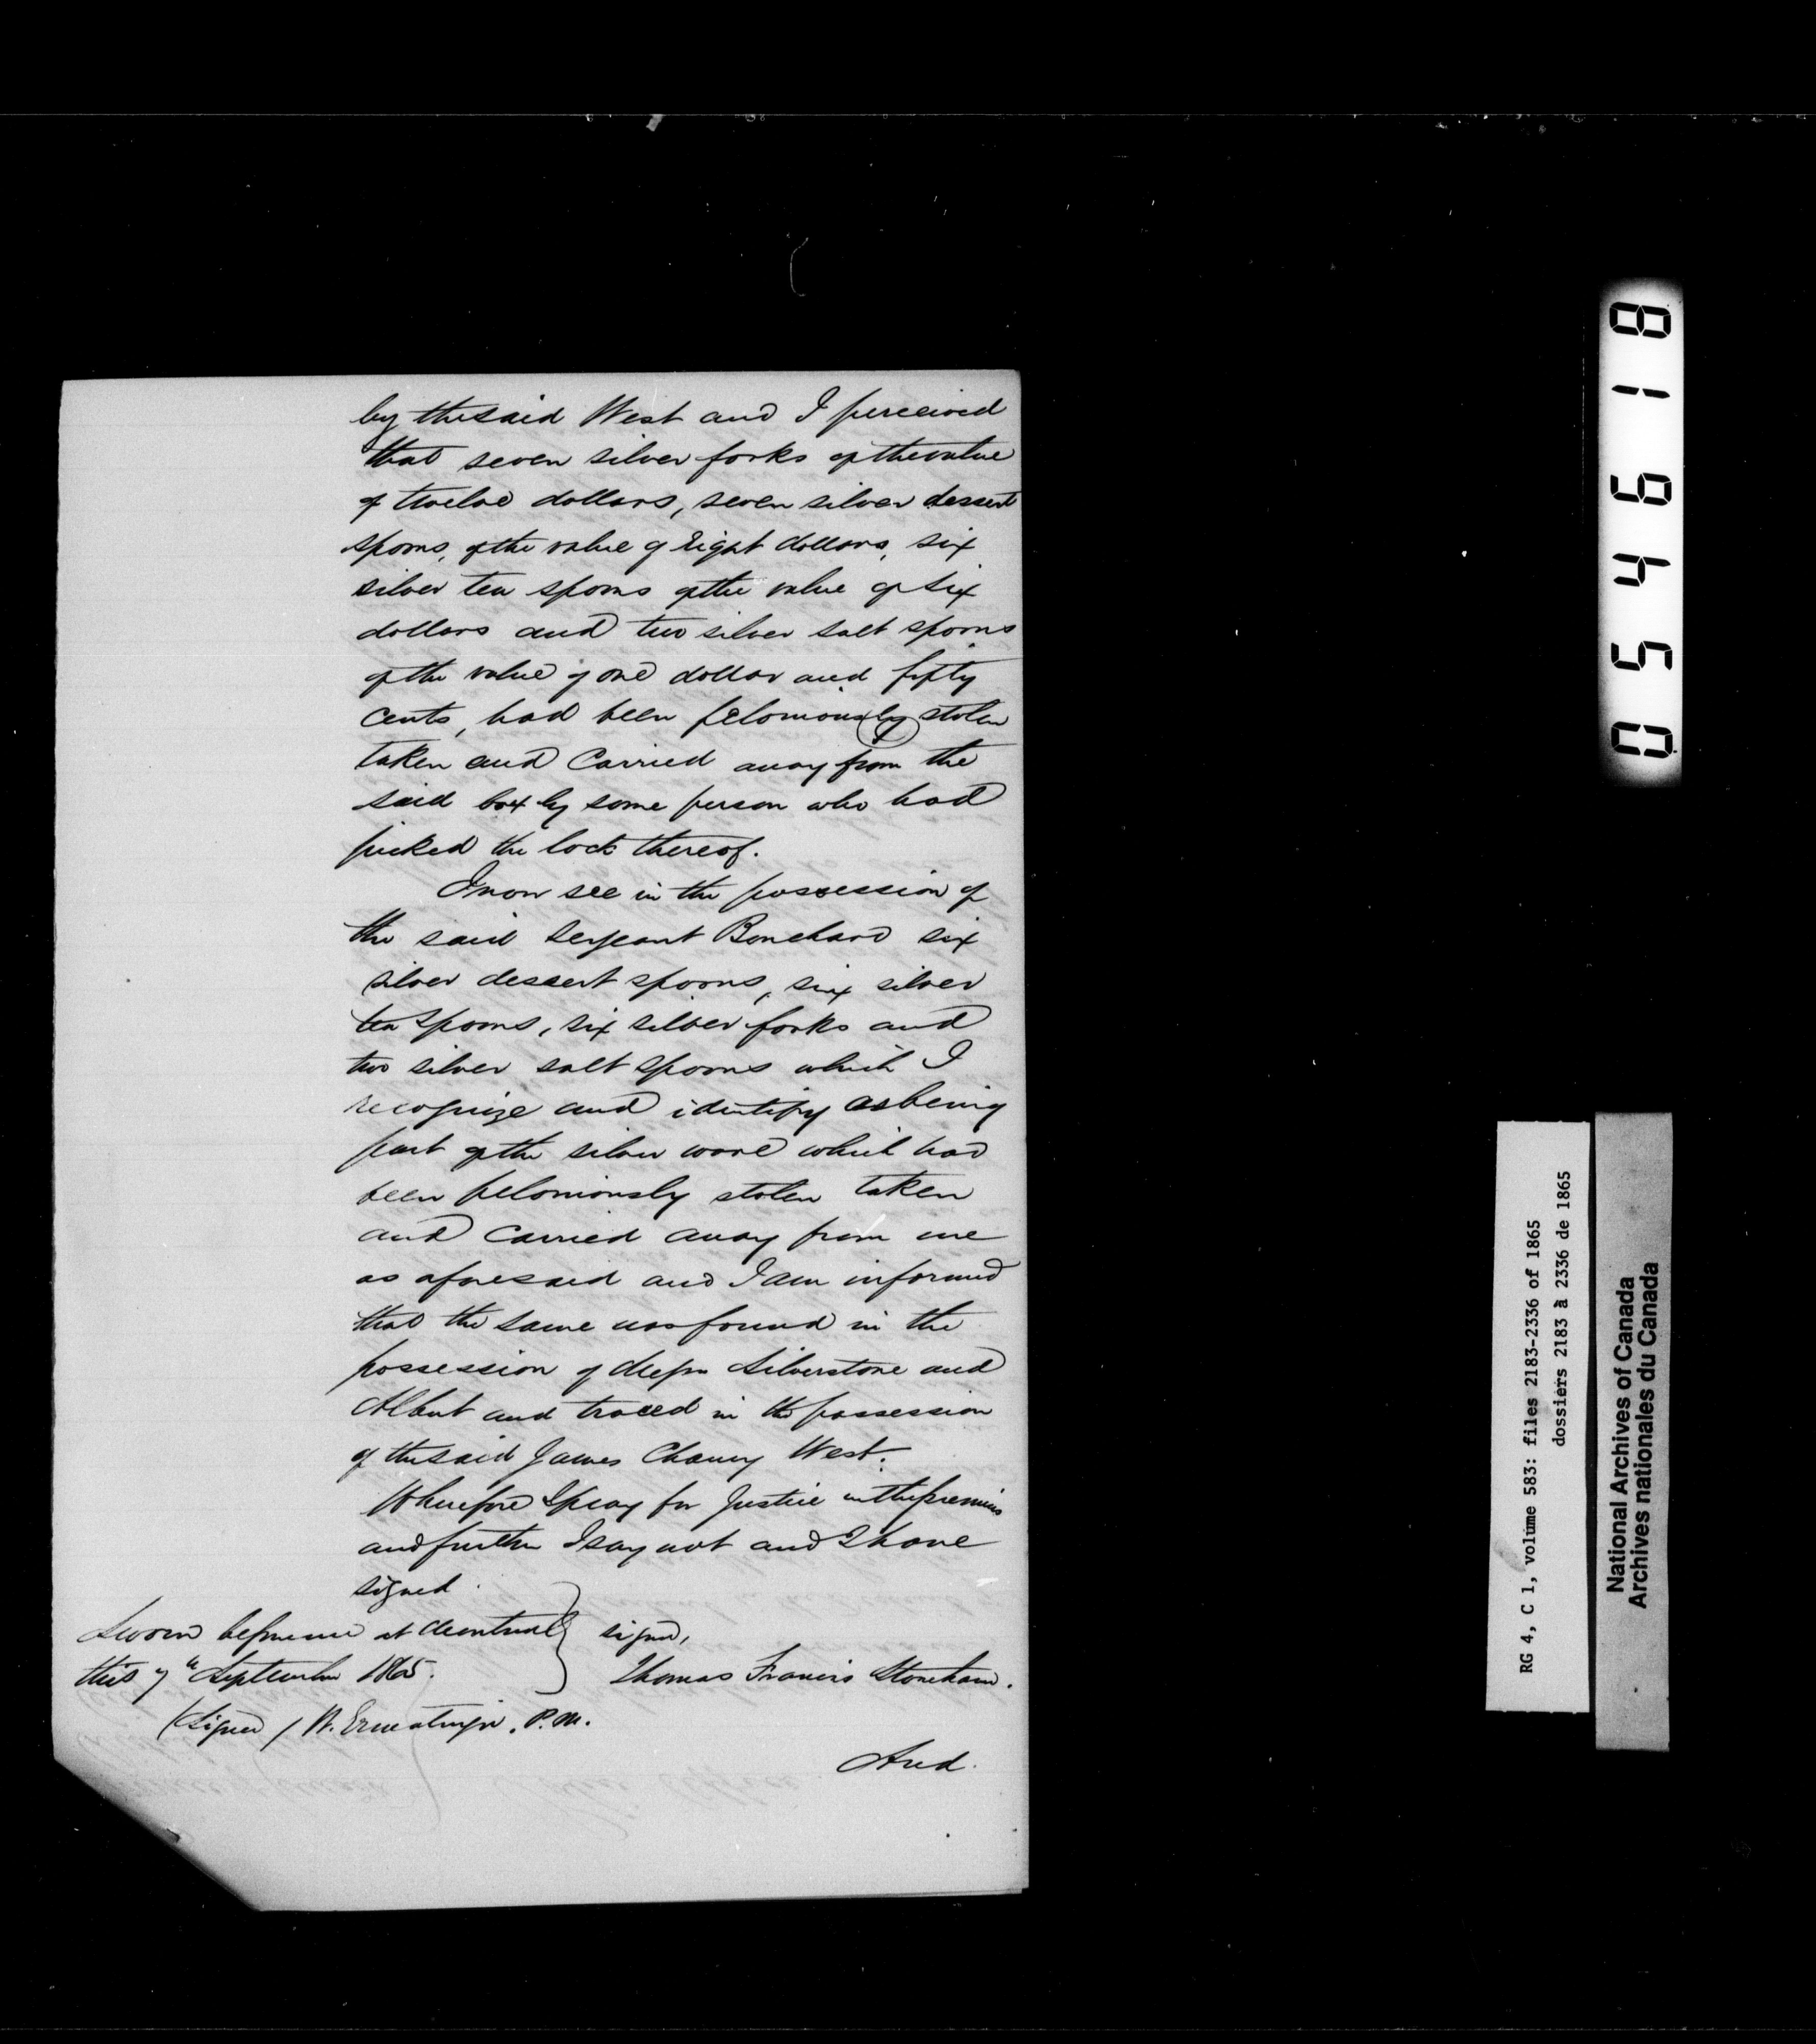 by the said West and I perceived
that seven silver forks of the value
of twelve dollars, seven silver dessert
spoons, of the value of eight dollars, six
silver tea spoons of the value of six
dollars and two silver salt spoons
of the value of one dollar and fifty
cents, had been feloniously stolen
taken and carried away from the
said box by some person who had
picked the lock thereof.
I now see in the possession of
the said Serjeant Bouchard six
silver dessert spoons, six silver
tea spoons, six silver forks and
two silver salt spoons which I
recognize and identify as being
part of the silver ware which had
been feloniously stolen taken
and carried away from me
as aforesaid and I am informed
that the same was found in the
possession of Messrs Silverstone and
Albert and traced in the possession
of the said James Chancy West.
Wherefore I pray for Justice in the premises
and further I say not and I have
signed.
Sworn before me at Montreal
this 7th September 1865.
(Signed / W. Ermatinger. P. M.
signed,
Thomas Francis Stoneham.
And.
054618
RG 4, C 1, volume 583: files 2183-2336 of 1865
dossiers 2183 à 2336 de 1865
National Archives of Canada
Archives nationales du Canada